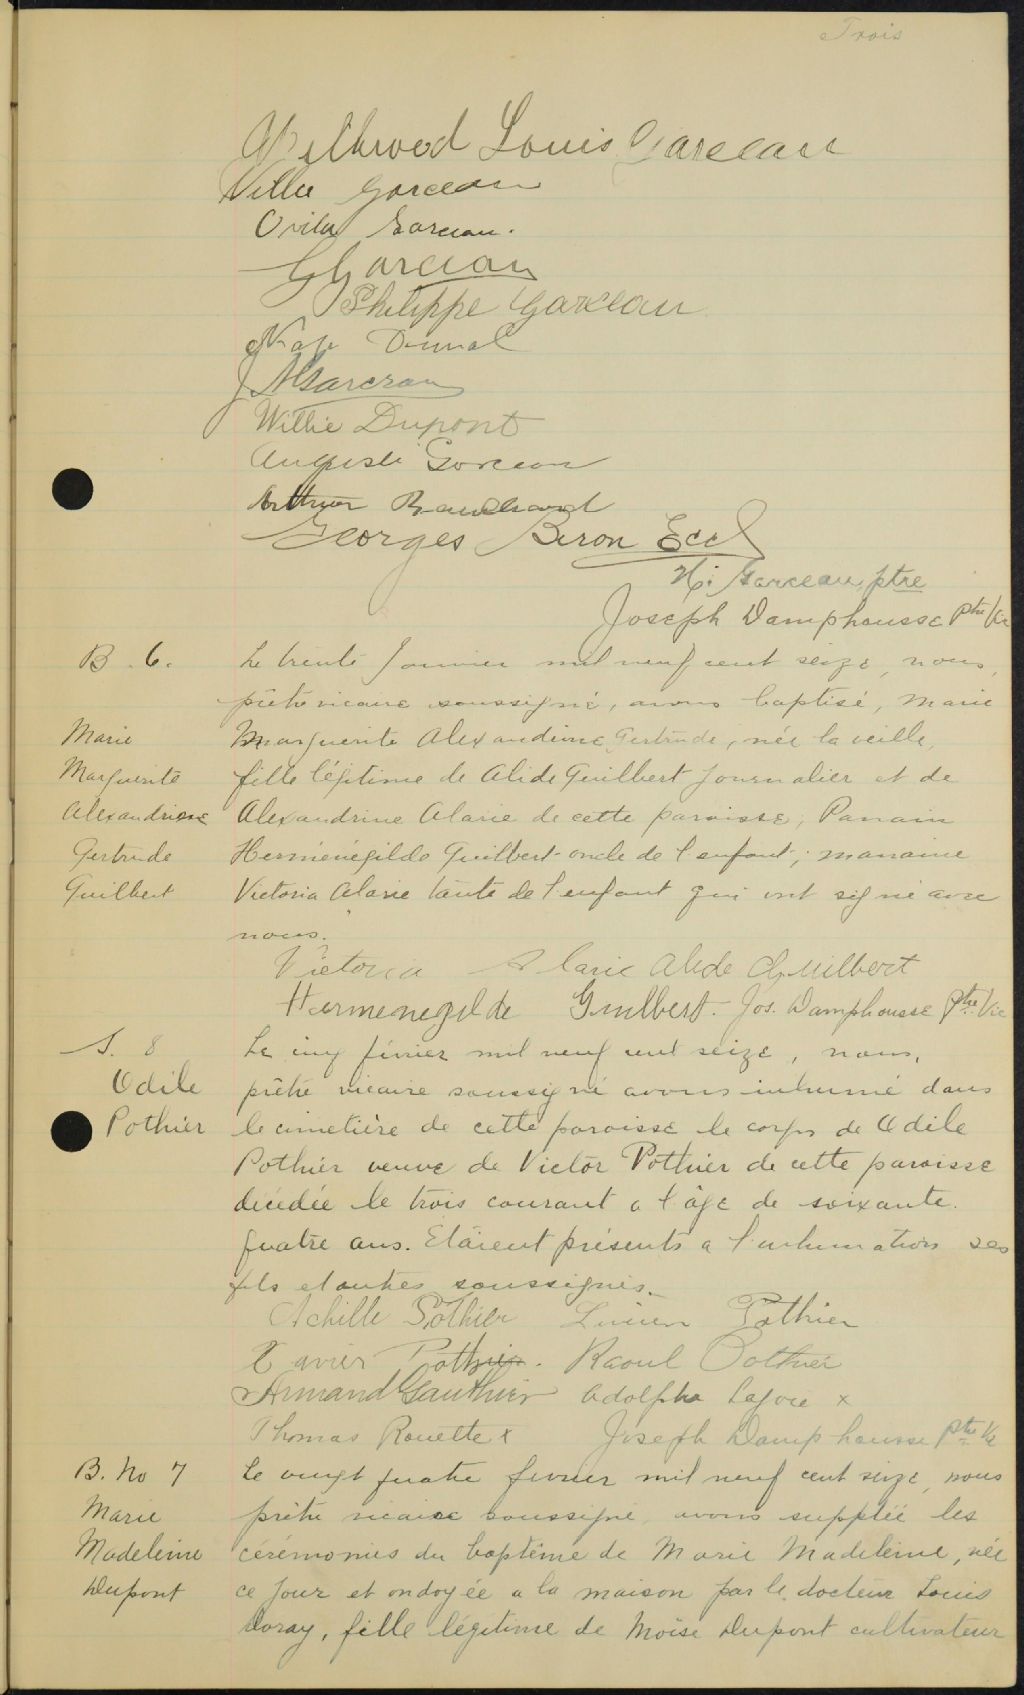 Trois
Wellwood Louis Garceau
Willie Garceau
Ovila Garceau.
G Garceau
Philippe Garceau
Nap Duval
J A Garceau
Willie Dupont
Auguste Garceau
Arthur Blanchard
Georges Biron Eccl
H. Garceau, ptre
Joseph Damphousse Ptre Vic
B. 6. Le trente Janvier mil neuf cent seize, nous,
prêtre vicaire soussigné, avons baptisé, Marie
Marie Marguerite Alexandrine Gertrude, née la veille,
Marguerite fille légitime de Alide Guilbert Journalier et de
Alexandrine Alexandrine Alarie de cette paroisse; Parrain
Gertrude Herménégilde Guilbert oncle de l'enfant; marraine
Guilbert Victoria Alarie tante de l'enfant qui ont signé avec
nous.
Victoria Alarie Alide Guilbert
Hermenegilde Guilbert. Jos. Damphousse Ptre Vic
S. 8 Le cinq février mil neuf cent seize, nous,
Odile prêtre vicaire soussigné avons inhumé dans
Pothier le cimetière de cette paroisse le corps de Odile
Pothier veuve de Victor Pothier de cette paroisse
décédée le trois courant a l'âge de soixante.
quatre ans. Etaient présents a l'inhumation ses
fils et autres soussignés.
Achille Pothier Lucien Pothier
Xavier Pothier. Raoul Pothier
Armand Gauthier Adolpha Lajoie x
Thomas Rouette x Joseph Damphousse Ptre Vic
B. No 7 Le vingt quatre février mil neuf cent seize, nous
Marie prêtre vicaire soussigné avons suppléé les
Madeleine cérémonies du baptême de Marie Madeleine, née
Dupont ce jour et ondoyée a la maison par le docteur Louis
Doray, fille légitime de Moïse Dupont cultivateur